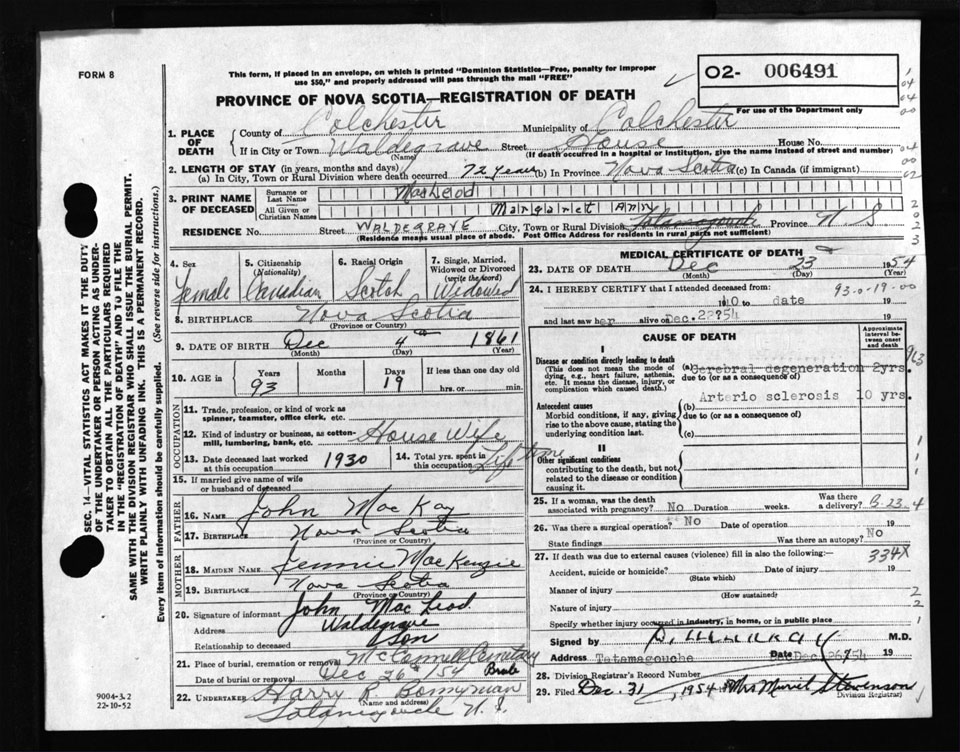 FORM 8
This form, if placed in an envelope, on which is printed "Dominion Statistics—Free, penalty for improper
use $50," and properly addressed will pass through the mail "FREE"
02- 006491
For use of the Department only
PROVINCE OF NOVA SCOTIA—REGISTRATION OF DEATH
1. PLACE OF DEATH
County of Colchester Municipality of Colchester
If in City or Town Waldegrave Street House House No.
(Name) (If death occurred in a hospital or institution, give the name instead of street and number)
2. LENGTH OF STAY (in years, months and days)
(a) In City, Town or Rural Division where death occurred 72 years (b) In Province Nova Scotia (c) In Canada (if immigrant)
3. PRINT NAME OF DECEASED
Surname or Last Name MacLeod
All Given or Christian Names Margaret Ann
RESIDENCE No. Street WALDEGRAVE City, Town or Rural Division Tatamagouche Province N S
(Residence means usual place of abode. Post Office Address for residents in rural parts not sufficient)
4. Sex Female
5. Citizenship (Nationality) Canadian
6. Racial Origin Scotch
7. Single, Married, Widowed or Divorced (write the word) Widowed
8. BIRTHPLACE Nova Scotia
(Province or Country)
9. DATE OF BIRTH Dec 4 1861
(Month) (Day) (Year)
10. AGE in Years 93 Months Days 19 If less than one day old hrs. or min.
OCCUPATION
11. Trade, profession, or kind of work as spinner, teamster, office clerk, etc.
12. Kind of industry or business, as cotton-mill, lumbering, bank, etc. House Wife
13. Date deceased last worked at this occupation 1930
14. Total yrs. spent in this occupation Life time
15. If married give name of wife or husband of deceased
FATHER
16. Name John MacKay
17. Birthplace Nova Scotia
(Province or Country)
MOTHER
18. MAIDEN NAME Jennie MacKenzie
19. BIRTHPLACE Nova Scotia
(Province or Country)
20. Signature of informant John MacLeod.
Address Waldegrave
Relationship to deceased Son
21. Place of burial, cremation or removal McConnell Cemetary
Date of burial or removal Dec 26 /54
22. UNDERTAKER Harry R. Bonnyman
(Name and address)
Tatamagouche N.S.
MEDICAL CERTIFICATE OF DEATH
23. DATE OF DEATH Dec 23 1954
(Month) (Day) (Year)
24. I HEREBY CERTIFY that I attended deceased from: 93-0-19-00
to date 19
and last saw her alive on Dec. 22?54 19
CAUSE OF DEATH
Approximate interval between onset and death
I
Disease or condition directly leading to death
(This does not mean the mode of dying, e.g., heart failure, asthenia, etc. It means the disease, injury, or complication which caused death.)
(a) Cerebral degeneration 2yrs.
due to (or as a consequence of)
Antecedent causes
Morbid conditions, if any, giving rise to the above cause, stating the underlying condition last.
(b) Arterio sclerosis 10 yrs.
due to (or as a consequence of)
(c)
II
Other significant conditions
contributing to the death, but not related to the disease or condition causing it.
25. If a woman, was the death associated with pregnancy? No Duration weeks. Was there a delivery? B-23-4
26. Was there a surgical operation? No Date of operation 19
State findings Was there an autopsy? No
27. If death was due to external causes (violence) fill in also the following: 334X
Accident, suicide or homicide? Date of injury 19
(State which)
Manner of injury
(How sustained)
Nature of injury
Specify whether injury occurred in industry, in home, or in public place
Signed by M.D.
Address Tatamagouche Date Dec. 26?54 19
28. Division Registrar's Record Number
29. Filed Dec. 31 1954 Mrs Muriel Stevenson
Division Registrar
9004-3.2
22-10-52
SEC. 14—VITAL STATISTICS ACT MAKES IT THE DUTY
OF THE UNDERTAKER OR PERSON ACTING AS UNDER-
TAKER TO OBTAIN ALL THE PARTICULARS REQUIRED
IN THE "REGISTRATION OF DEATH" AND TO FILE THE
SAME WITH THE DIVISION REGISTRAR WHO SHALL ISSUE THE BURIAL PERMIT.
WRITE PLAINLY WITH UNFADING INK. THIS IS A PERMANENT RECORD.
Every item of information should be carefully supplied. (See reverse side for instructions.)